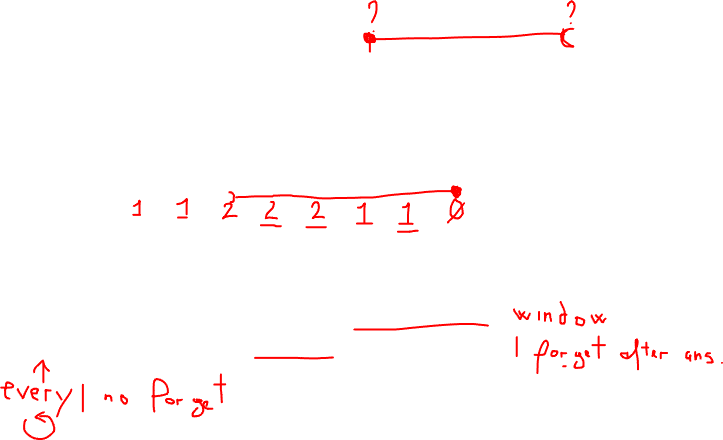 ? ?
1 1 2 2 2 1 1 0
window
1 forget after ans.
every 1 no forget